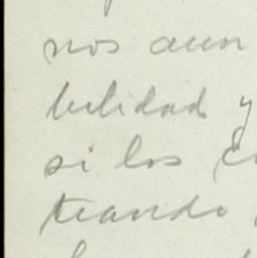 nos aun
bilidad y
si los
teando